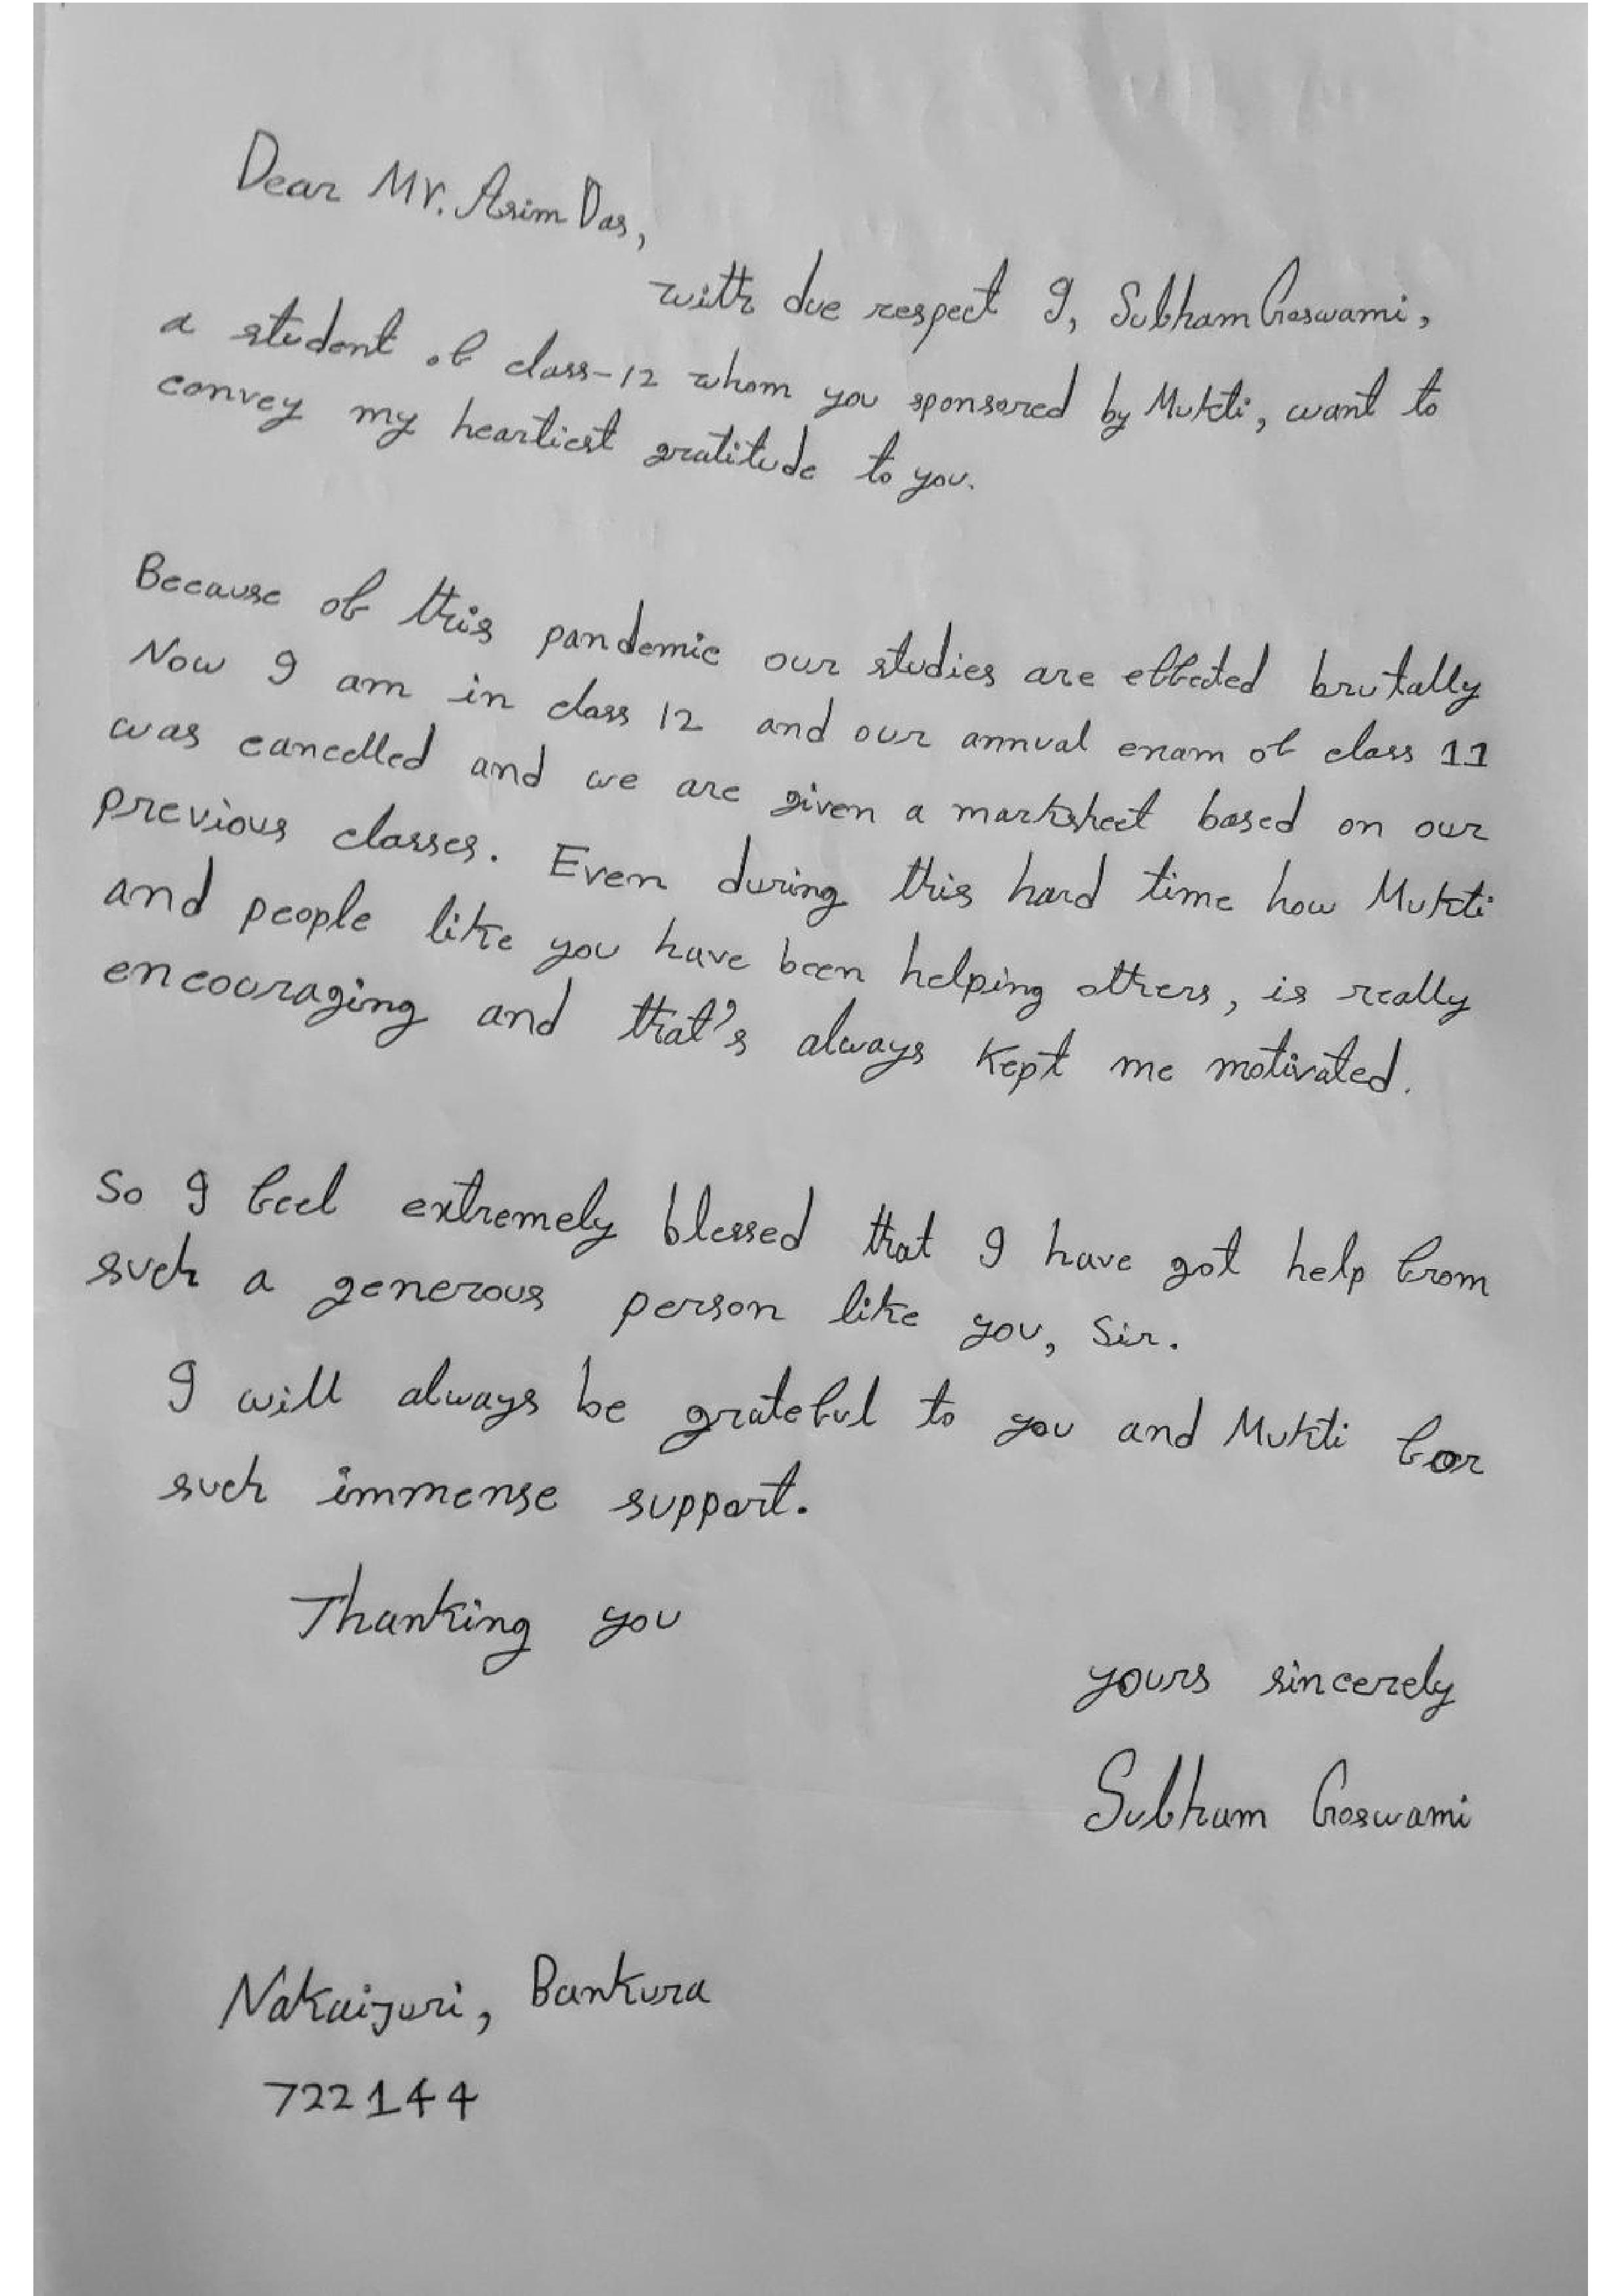 Dear Mr. Asim Das,
with due respect I, Subham Goswami,
a student of class-12 whom you sponsored by Mukti, want to
convey my heartiest gratitude to you.
Because of this pandemic our studies are effected brutally
Now I am in class 12 and our annual exam of class 11
was cancelled and we are given a marksheet based on our
previous classes. Even during this hard time how Mukti
and people like you have been helping others, is really
encouraging and that's always kept me motivated.
So I feel extremely blessed that I have got help from
such a generous person like you, Sir.
I will always be grateful to you and Mukti for
such immense support.
Thanking you
yours sincerely
Subham Goswami
Nakaijuri, Bankura
722144